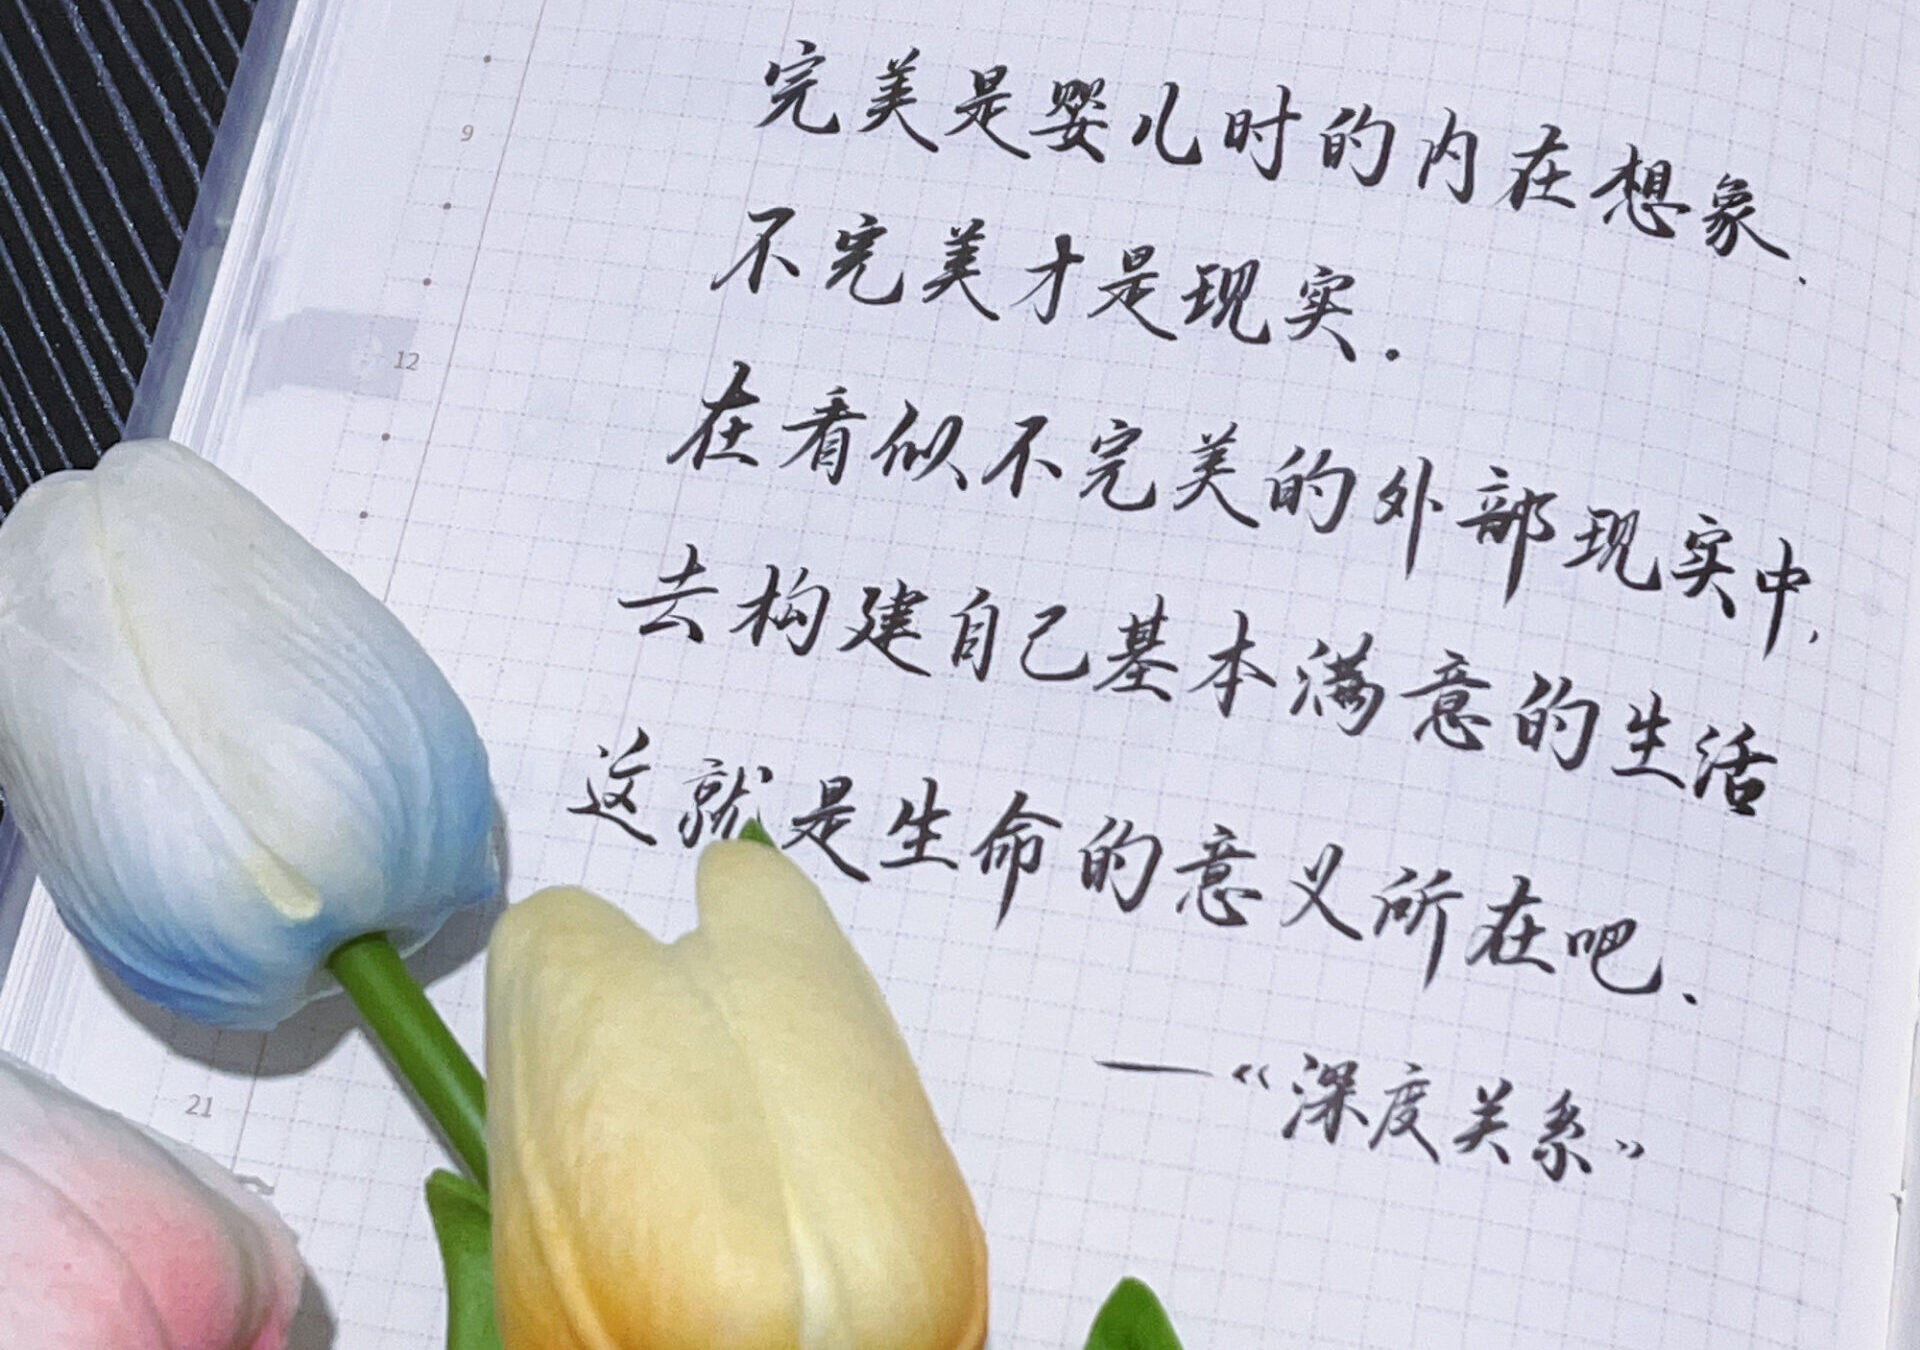 完美是婴儿时的内在想象.
不完美才是现实.
在看似不完美的外部现实中,
去构建自己基本满意的生活
这就是生命的意义所在吧.
—《深度关系》
9
12
21